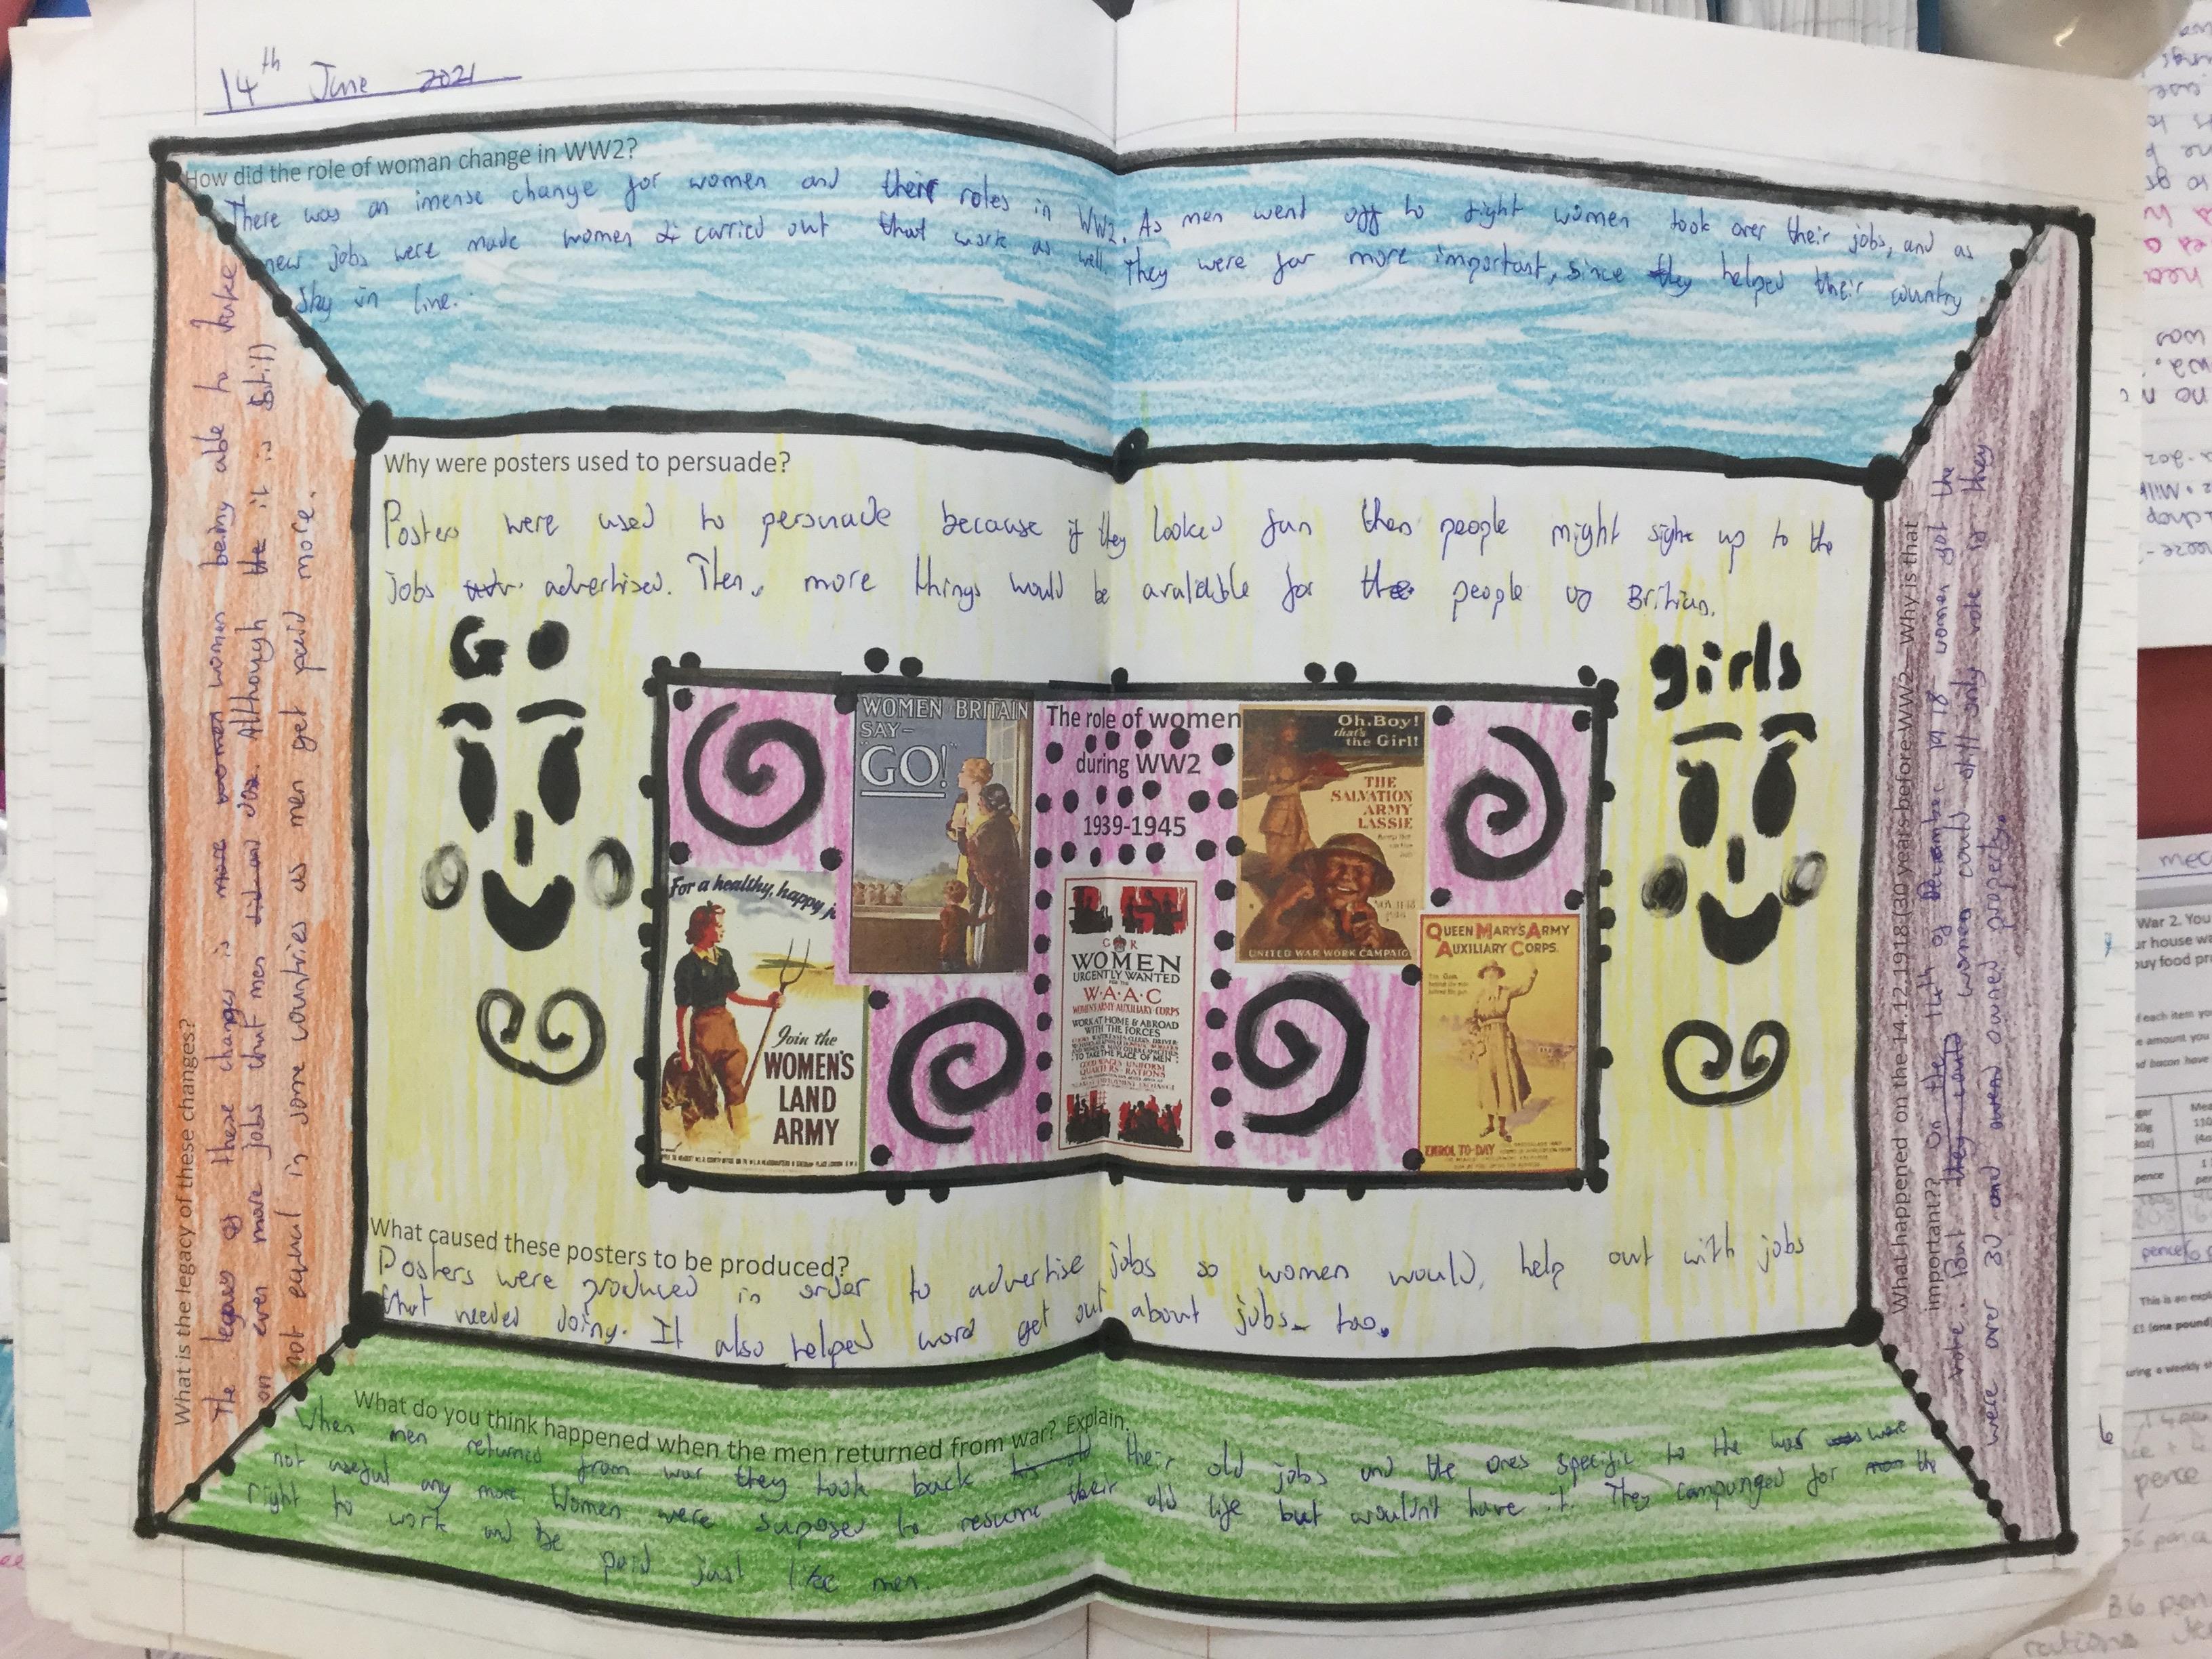 14th June 2021
How did the role of woman change in WW2?
There was an imense change for women and their roles in WW2. As men went off to fight women took over their jobs, and as
new jobs were made women carried out that work as well. They were far more important, since they helped their country
stay in line.
What is the legacy of these changes?
The legacy of these changes is more women women being able to take
on even more jobs that men did and do. Although the it is still
not equal in some countries as men get paid more.
Why were posters used to persuade?
Posters were used to persuade because if they looked fun then people might sighn up to the
jobs advertised. Then, more things would be avalidble for the people of Britian.
GO
girls
WOMEN BRITAIN
SAY-
"GO!"
The role of women
during WW2
1939-1945
Oh, Boy!
that's
the Girl!
THE
SALVATION
ARMY
LASSIE
UNITED WAR WORK CAMPAIG
For a healthy, happy j
Join the
WOMEN'S
LAND
ARMY
G R
WOMEN
URGENTLY WANTED
FOR THE
W·A·A·C
WOMEN'S ARMY AUXILIARY CORPS
WORK AT HOME & ABROAD
WITH THE FORCES
TO TAKE THE PLACE OF MEN
GOOD WAGES · UNIFORM
QUARTERS · RATIONS
QUEEN MARY'S ARMY
AUXILIARY CORPS.
The Girl
behind the man
behind the gun
ENROL TO-DAY
What caused these posters to be produced?
Posters were produced in order to advertise jobs so women would, help out with jobs
that needed doing. It also helped word get out about jobs too.
What do you think happened when the men returned from war? Explain.
When men returned from war they took back his old their old jobs and the ones specific to the war was were
not useful any more. Women were suposed to resume their old life but wouldn't have it. They campunged for the
right to work and be paid just like men.
What happened on the 14.12.1918 (30 years before WW2 Why is that
important??
On the 14th of December 1918 women got the
vote. But they could women could still only vote if they
were over 30 and owend owned property.
6
War 2. You
buy food pr
each item yo
amount you
pence
pence
This is an expl
£1 (one pound)
uring a weekly s
pence
36 pen
rations